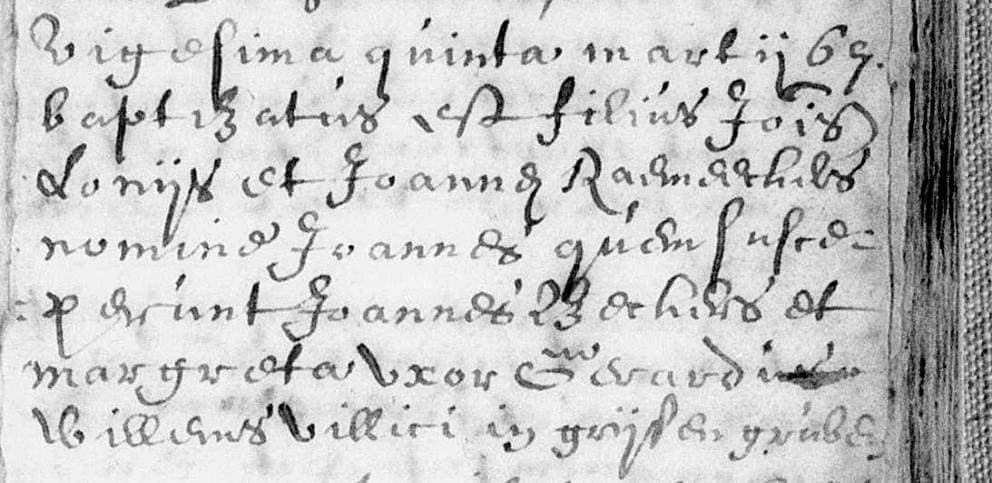 Vigesima quinta martij 67.
baptizatus est filius Jois
Lonijs et Joanne Raemeckers
nomine Joannes quem susce-
perunt Joannes Beckers et
margreta Uxor Gerardi
Willems Villici in grijsen gruben